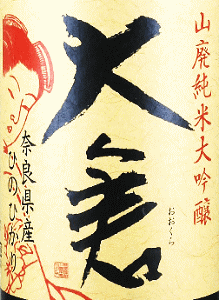 山廃純米大吟醸
大倉
おおくら
奈良県産
ひのひかり